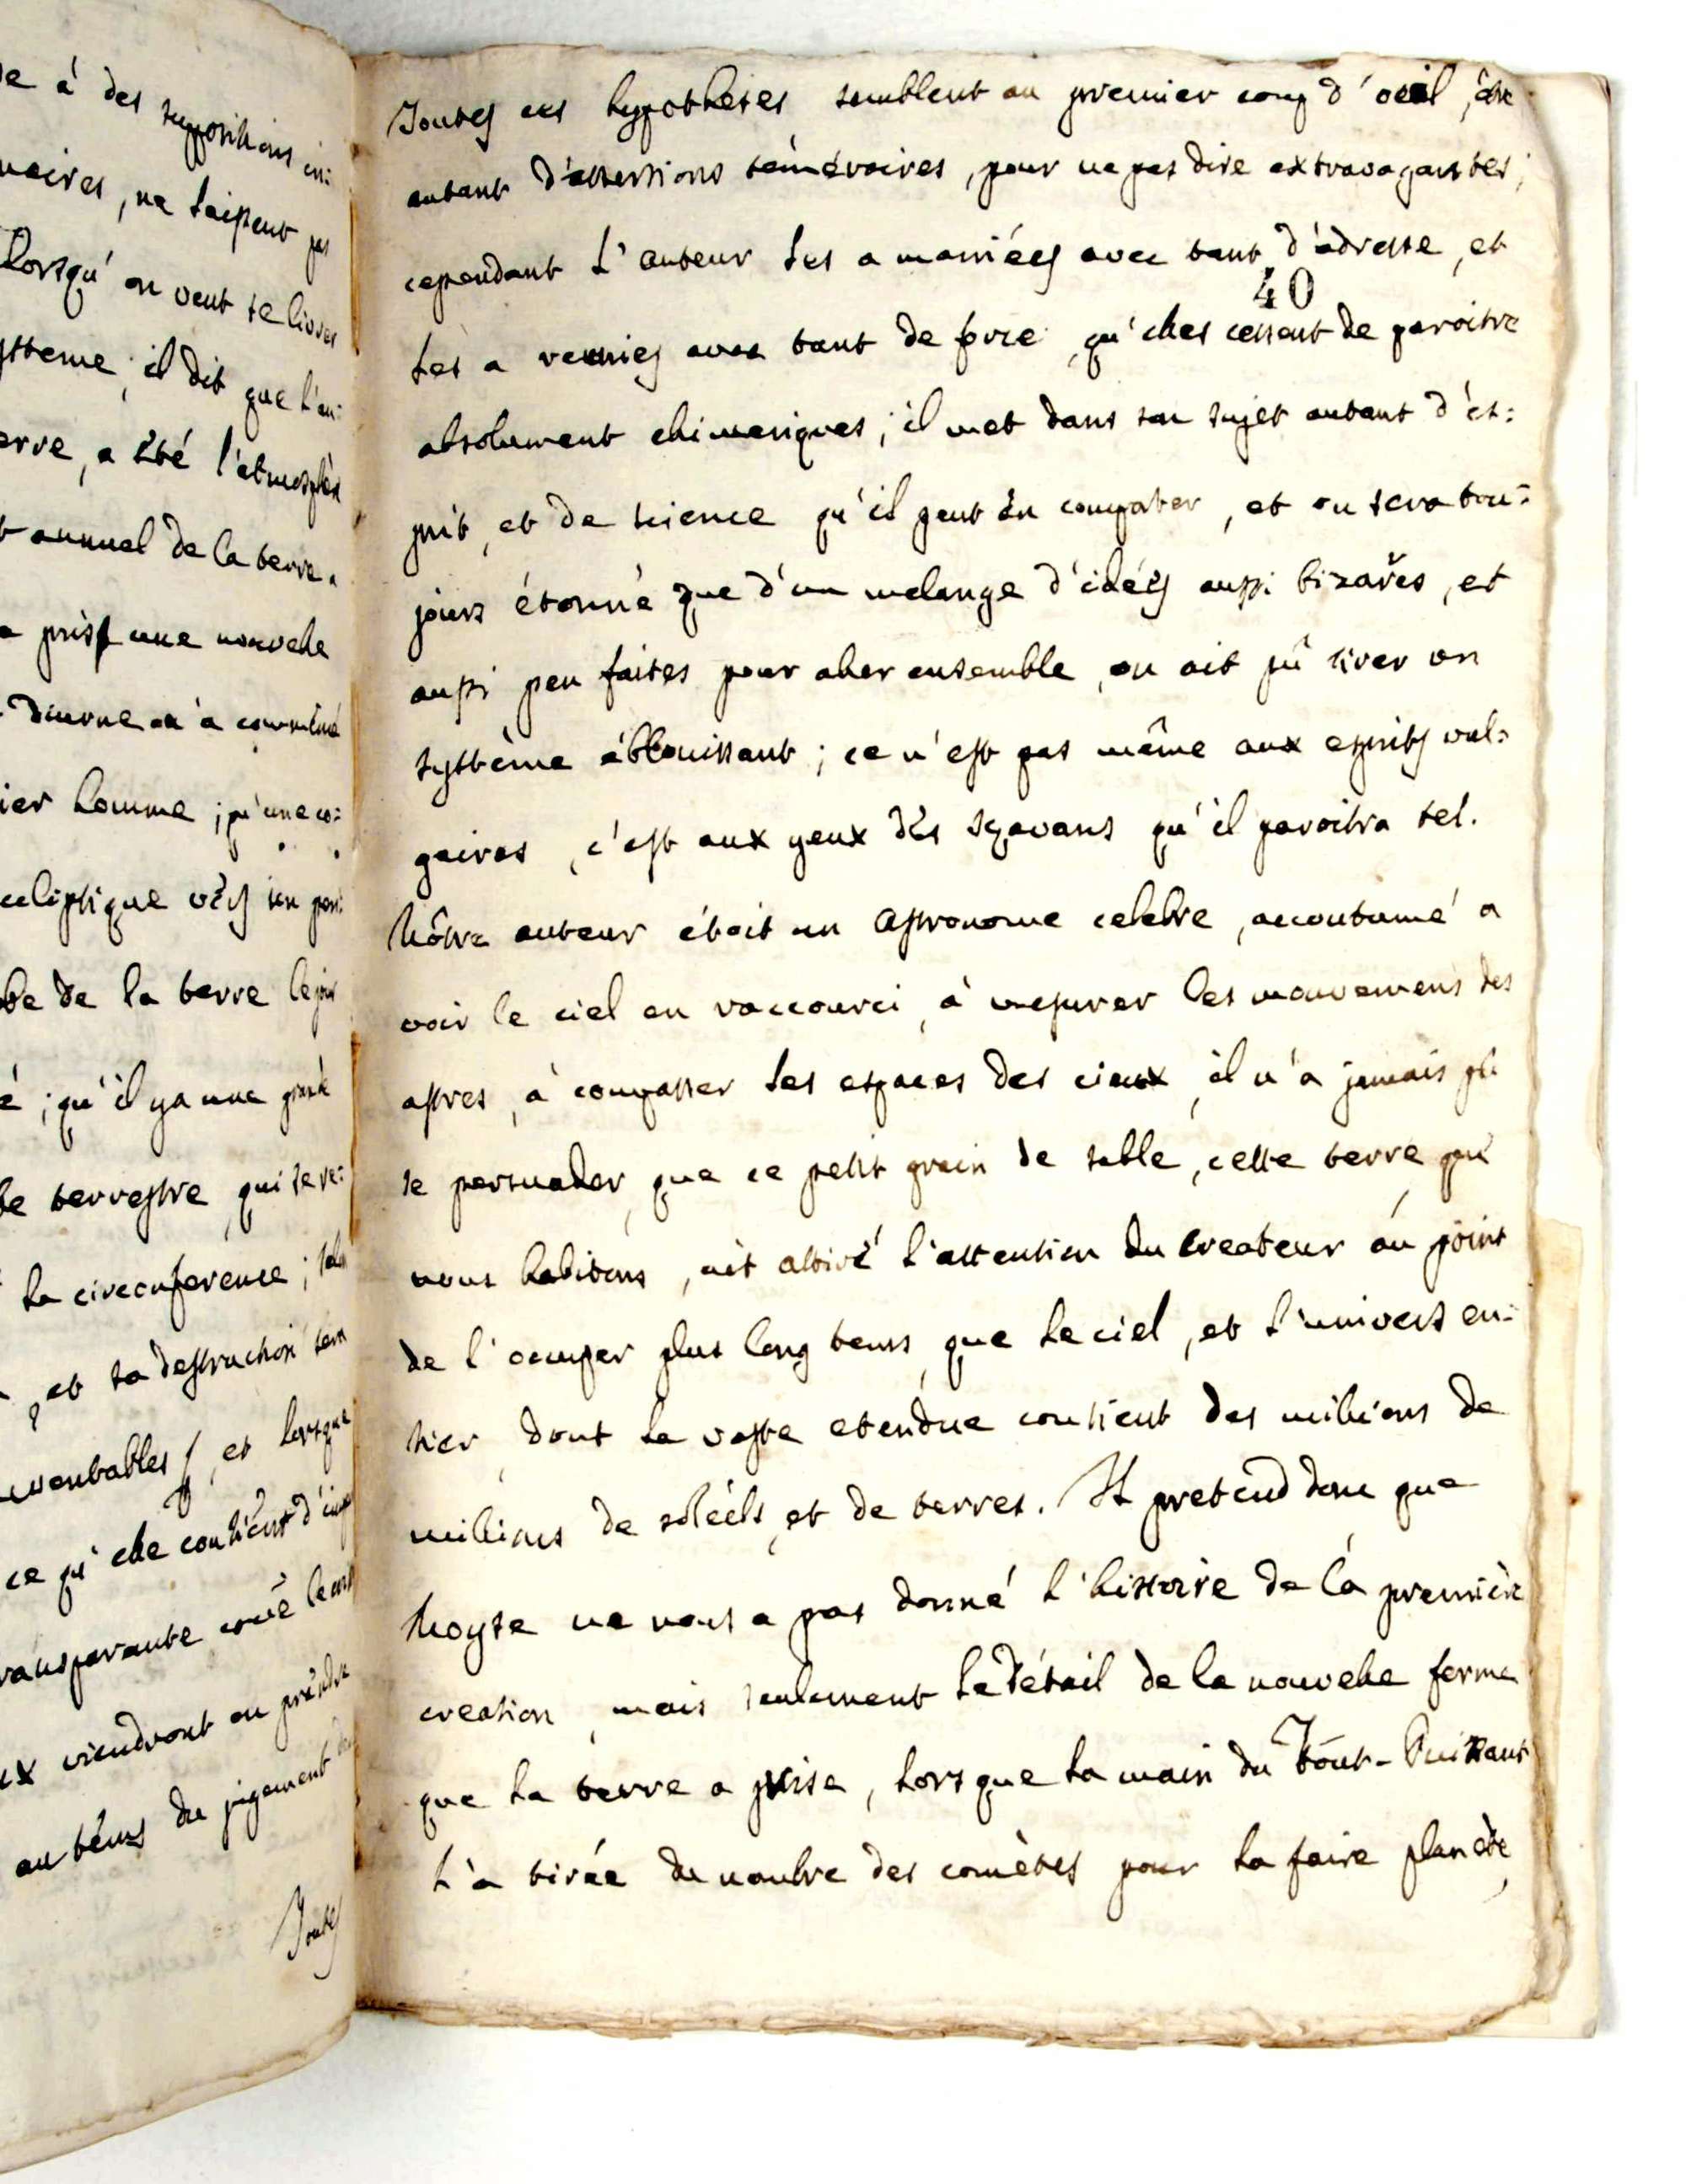 e à des suppositions im:
naires, ne laissent pas
lorsqu'on veut se livrer
ysteme; il dit que l'an:
erre, a été l'atmosphère
t annuel de la terre a
a pris une nouvelle
diurne n'a commencé
ier homme; qu'une co:
ecliptique vers son
be de la terre le jour
é; qu'il y a une grande
le terrestre, qui se re:
la circonference;
et sa destruction sera
, et lorsque
ce qu'elle contient d'
ransparante côme le
ux viendront en prendre
au têms du jugement
Toutes
Toutes ces hypothèses, semblent au premier coup d'oeil, être
autant d'assertions téméraires, pour ne pas dire extravagantes;
cependant l'auteur les a maniées avec tant d'adresse, et
40
les a reunies avec tant de force, qu'elles cessent de paroitre
absolument chimeriques; il met dans son sujet autant d'es:
prit, et de science qu'il peut en comporter, et on sera tou:
jours étonné que d'un melange d'idées aussi bizares, et
aussi peu faites pour aller ensemble, on ait pû tirer un
système éblouissant; ce n'est pas même aux esprits vul:
gaires, c'est aux yeux des sçavans qu'il paroitra tel.
Nôtre auteur étoit un Astronome celebre, accoutumé a
voir le ciel en raccourci, à mesurer les mouvemens des
astres, à compasser les espaces des cieux, il n'a jamais pû
se persuader, que ce petit grain de sable, cette terre que
nous habitons, ait attiré l'attention du Createur au point
de l'occuper plus long tems, que le ciel, et l'univers en:
tier, dont la vaste etendue contient des milions de
milions de soleils, et de terres. Il pretend donc que
Moyse ne nous a pas donné l'histoire de la première
creation, mais seulement le détail de la nouvelle forme
que la terre a prise, lorsque la main du Tout-Puissant
l'a tirée du nombre des comètes pour la faire planète,